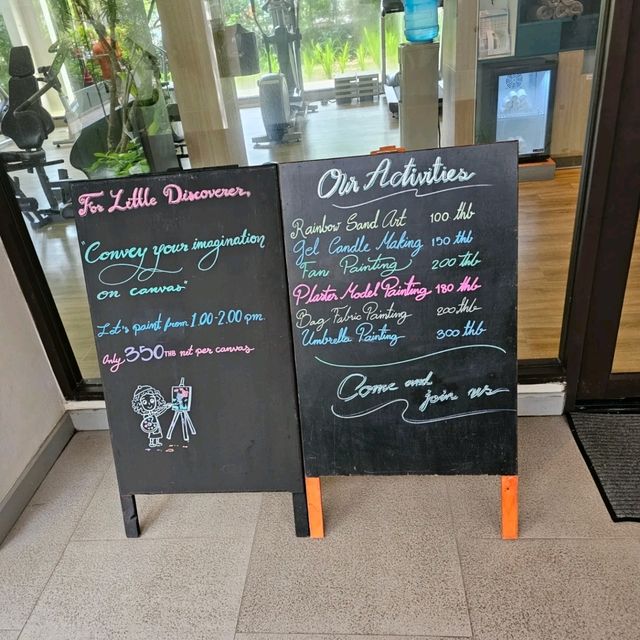 For Little Discoverer,
"Convey your imagination
on canvas"
Let's paint from 1.00-2.00 pm
Only 350 THB net per canvas
Our Activities
Rainbow Sand Art 100 thb
Gel Candle Making 150 thb
Fan Painting 200 thb
Plaster Model Painting 180 thb
Bag Fabric Painting 200 thb
Umbrella Painting 300 thb
Come and
join us